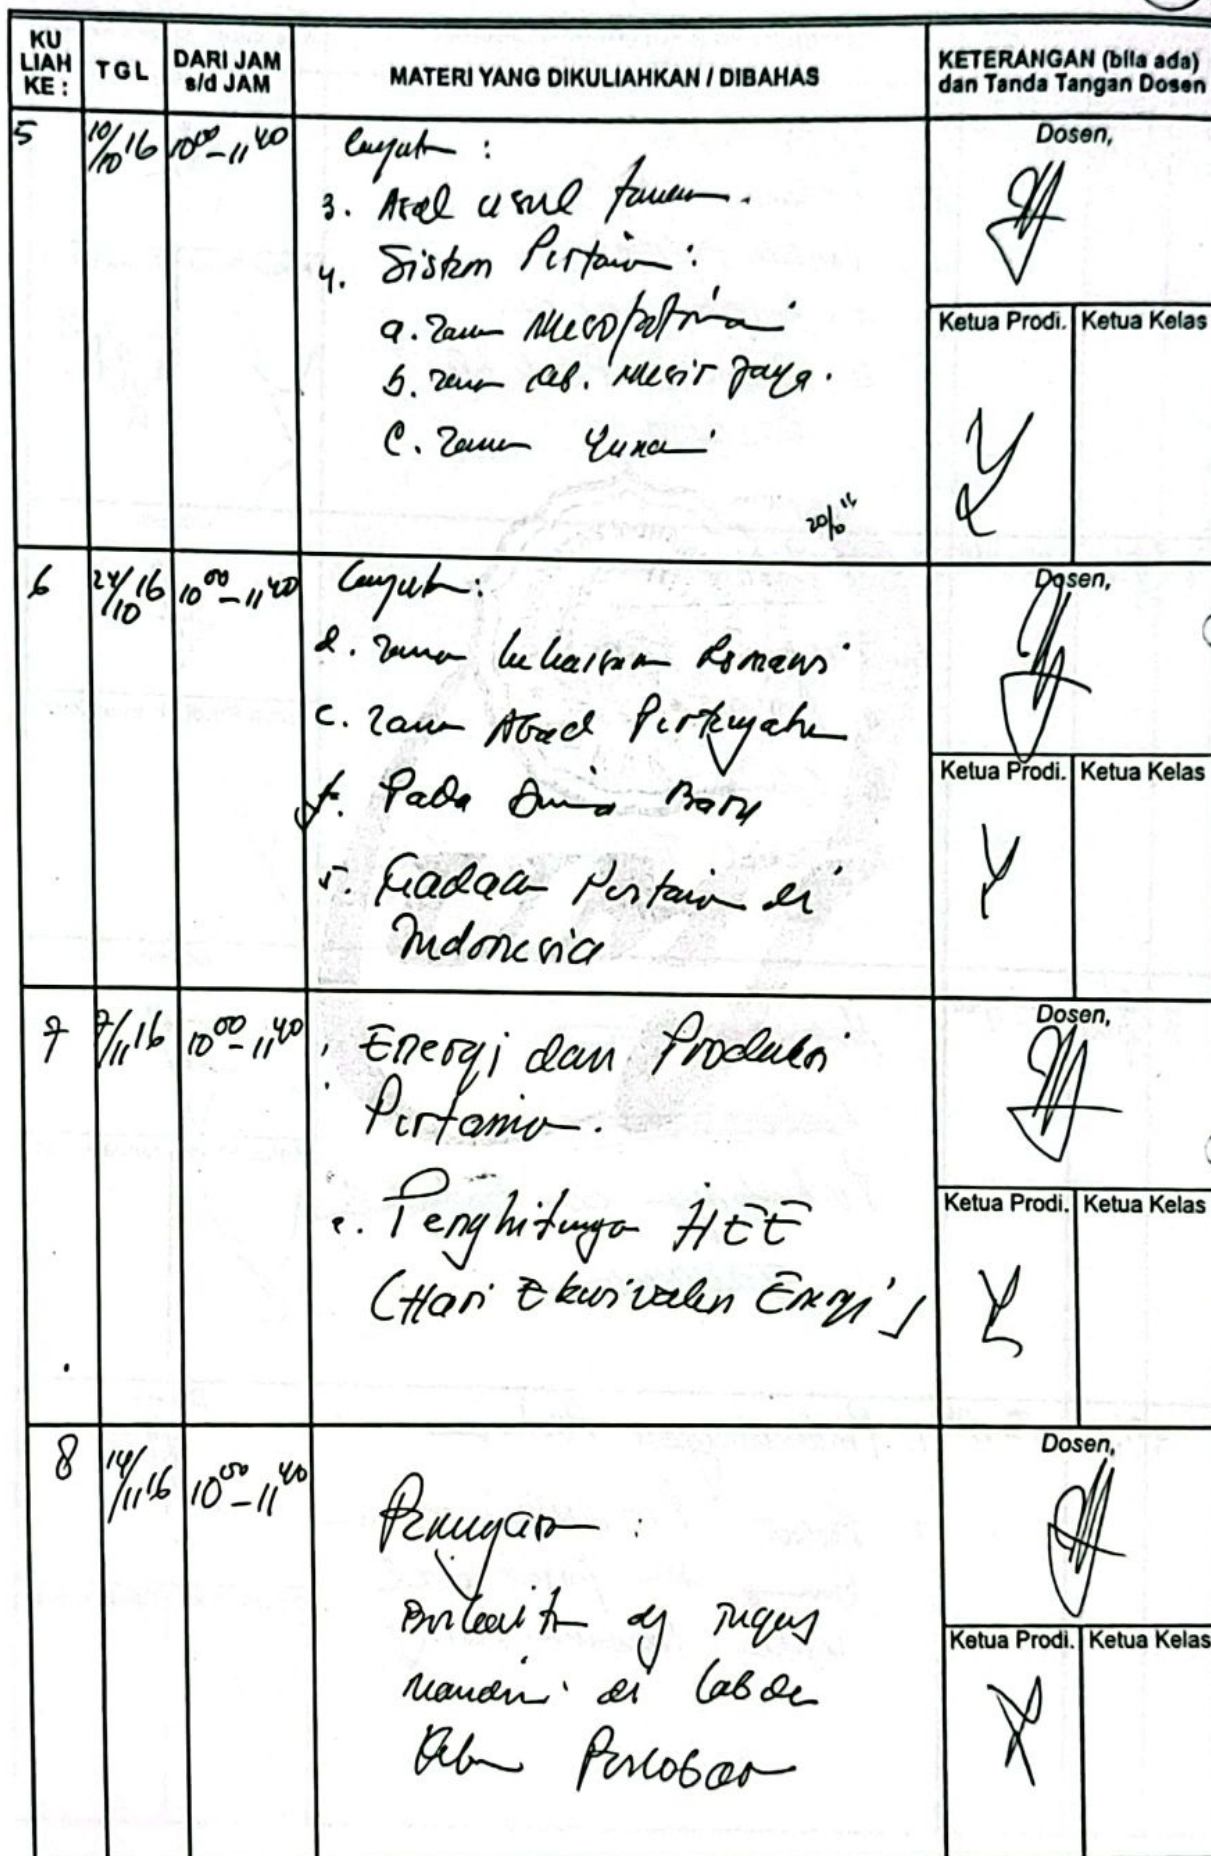 KU LIAH KE : TGL DARI JAM s/d JAM MATERI YANG DIKULIAHKAN / DIBAHAS KETERANGAN (bila ada) dan Tanda Tangan Dosen
5 10/10 16 10⁰⁰ - 11⁴⁰
Lanjutan :
3. Asal usul tanaman.
4. Sistem Pertanian :
a. Zaman Mesopotamia
b. Zaman Keb. Mesir Jaya.
c. Zaman Yunani
Dosen,
Ketua Prodi. Ketua Kelas
6 24/10 16 10⁰⁰ - 11⁴⁰
Lanjutan :
d. Zaman Romawi
e. Zaman Abad Pertengahan
f. Pada Dunia Baru
5. Keadaan Pertanian di
Indonesia
Dosen,
Ketua Prodi. Ketua Kelas
7 7/11 16 10⁰⁰ - 11⁴⁰
Energi dan Produksi
Pertanian.
Penghitungan HEE
(Hari Ekuivalen Energi)
Dosen,
Ketua Prodi. Ketua Kelas
8 14/11 16 10⁰⁰ - 11⁴⁰
Penugasan :
Berkaitan dg Tugas
Mandiri di Lab dan
Kebun Percobaan
Dosen,
Ketua Prodi. Ketua Kelas